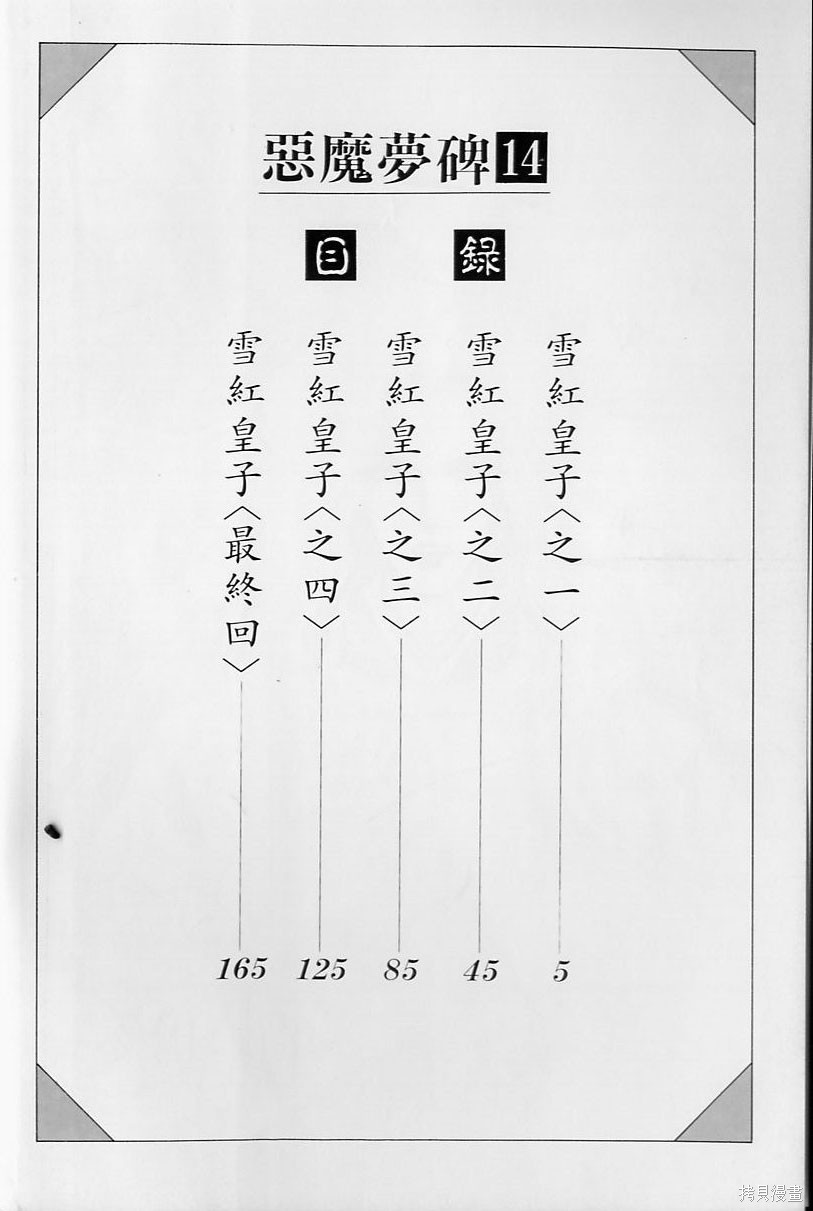 惡魔夢碑14
目錄
雪紅皇子〈之一〉 5
雪紅皇子〈之二〉 45
雪紅皇子〈之三〉 85
雪紅皇子〈之四〉 125
雪紅皇子〈最終回〉 165
拷貝漫畫